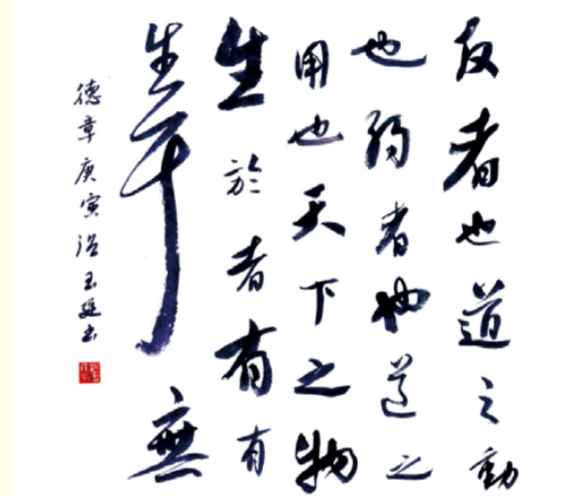 反者也道之動
也弱者也道之
用也天下之物
生於者有有
生乎無
德章庚寅玉廷书